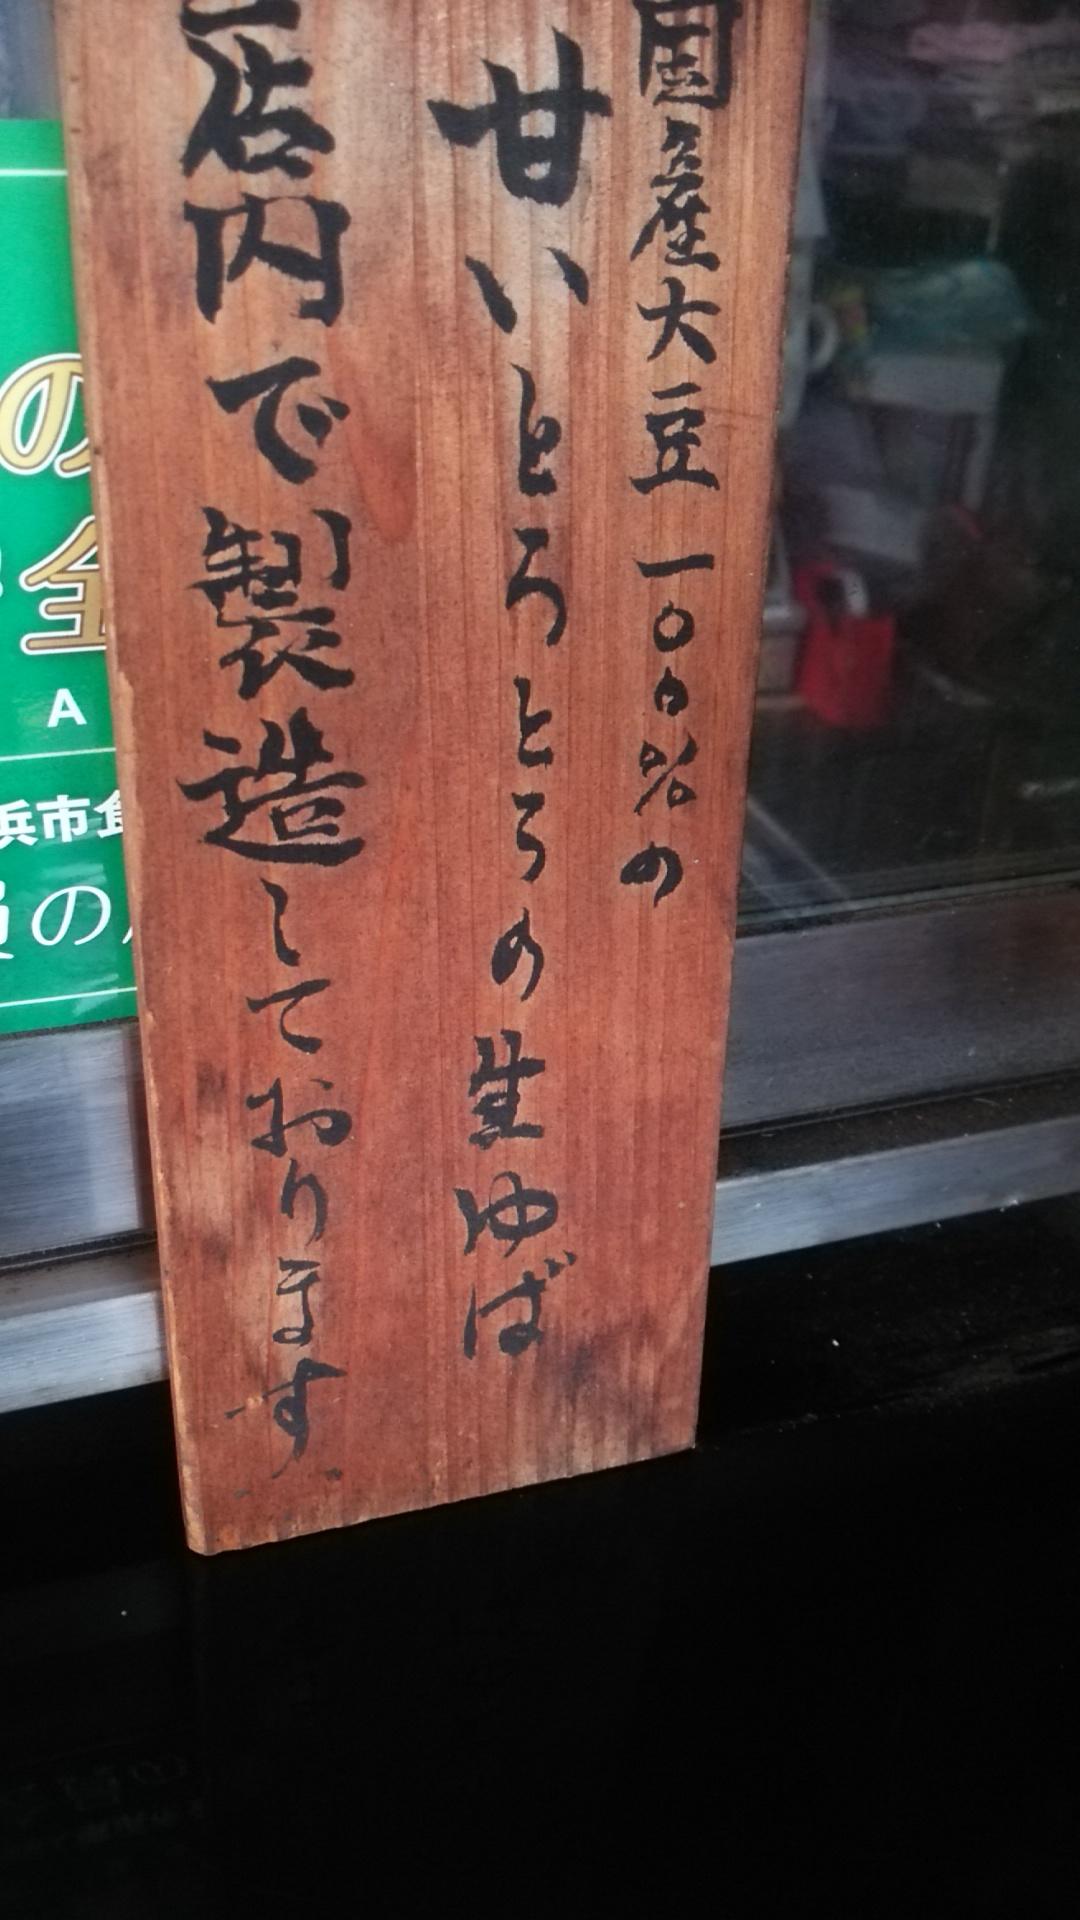 国産大豆一〇〇%の
甘いとろとろの生ゆば
店内で製造しております
の
全
A
浜市食
員の